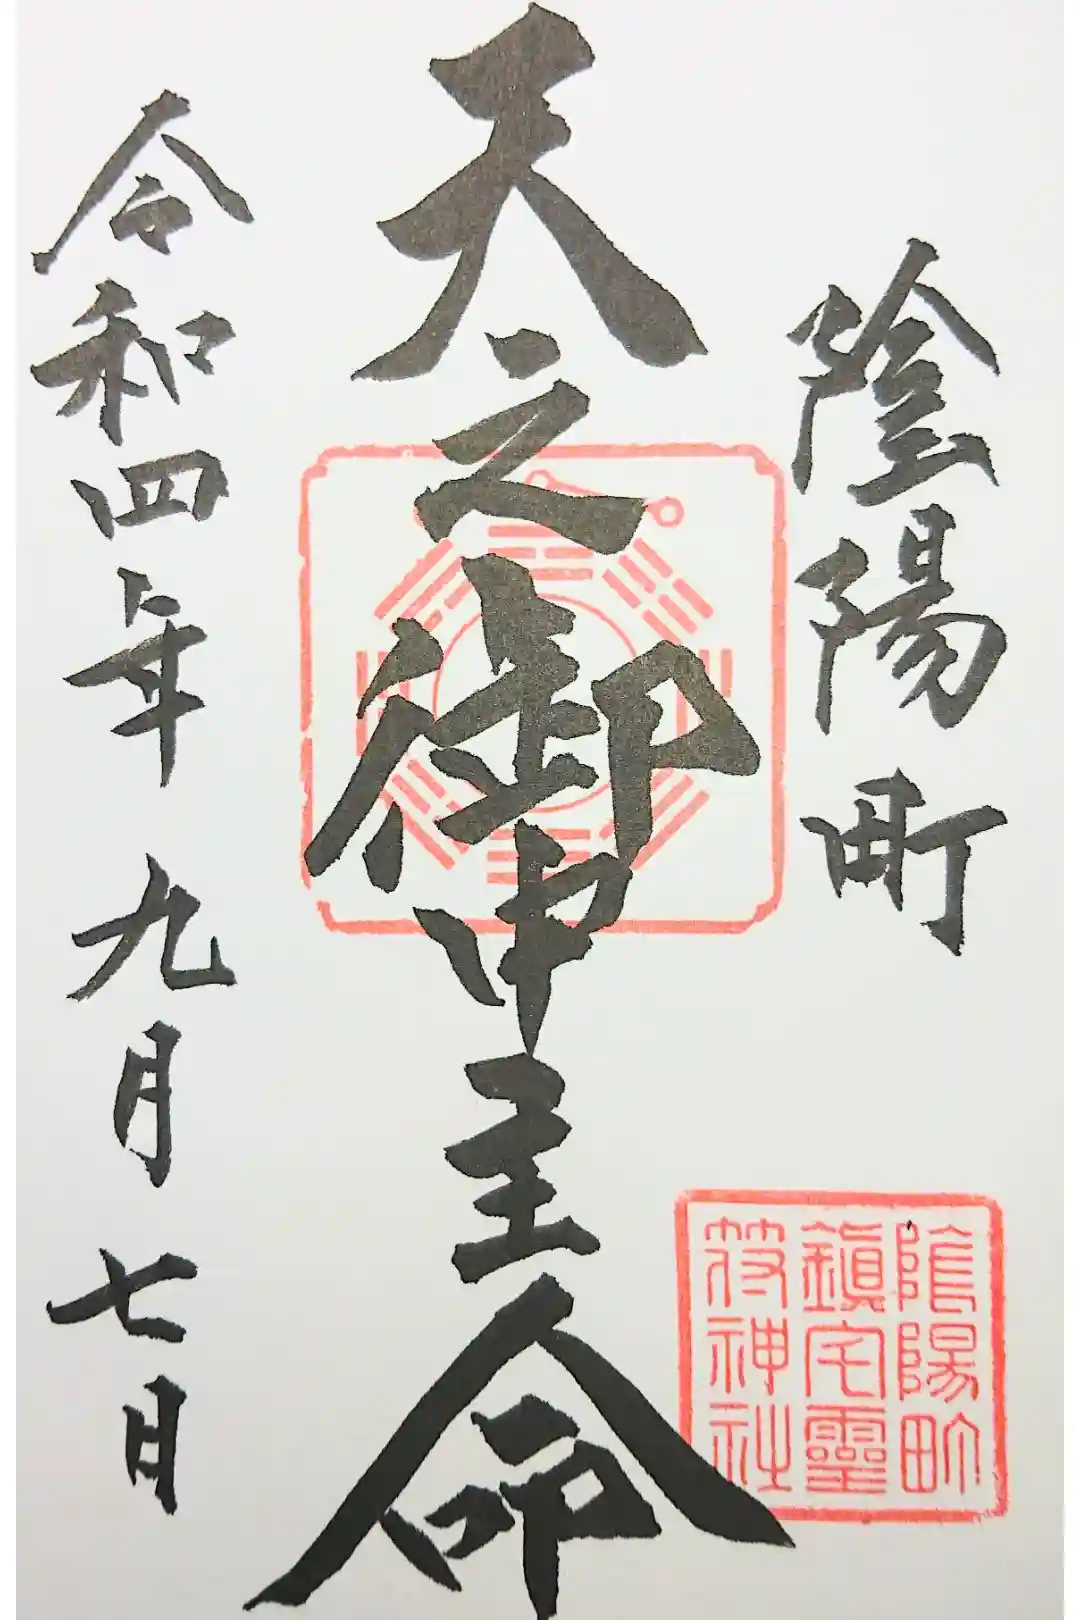 陰陽町
天之御中主命
令和四年九月七日
陰陽町
鎮宅霊
符神社